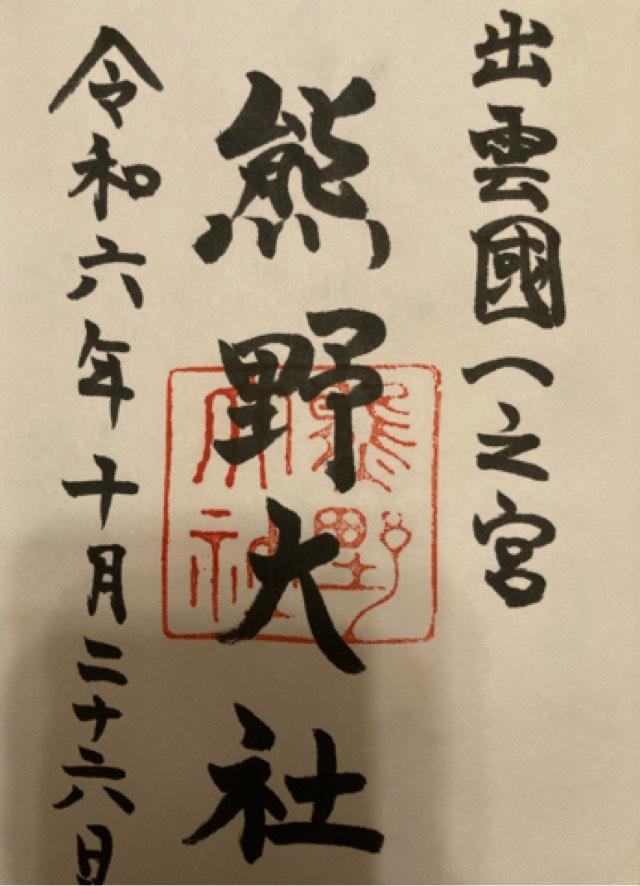 出雲國一之宮
熊野大社
令和六年十月二十六日
熊野
大社